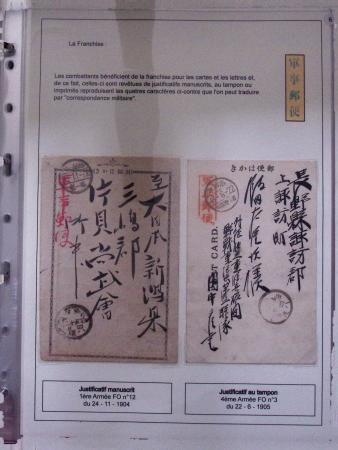 6
La Franchise :
Les combattants bénéficient de la franchise pour les cartes et les lettres et,
de ce fait, celles-ci sont revêtues de justificatifs manuscrits, au tampon ou
imprimés reproduisant les quatres caractères ci-contre que l'on peut traduire
par "correspondance militaire".
軍事郵便
至大日本新潟県
三嶋郡
片貝尚武會
軍事郵便
郵便はかき
長野縣諏訪郡
上諏訪町
軍事郵便
POST CARD.
Justificatif manuscrit
1ère Armée FO n°12
du 24 - 11 - 1904
Justificatif au tampon
4ème Armée FO n°3
du 22 - 6 - 1905